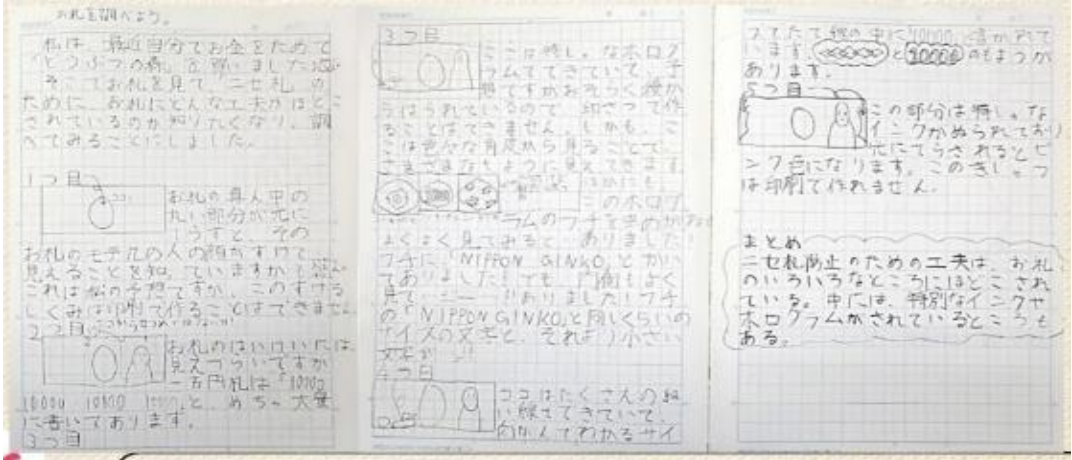 お札を調べよう。
私は、最近自分でお金をためて
「どうぶつの森」を買いました。
そこでお札を見て、ニセ札の
ために、お札にどんな工夫がほどこ
されているのか知りたくなり、調
べてみることにしました。
1つ目
お札の真ん中の
丸い部分が光に
すと、その
お札のモデルの人の顔がすけて
見えることを知っていますか
これは私の予想ですが、このすける
しくみは印刷で作ることはできません
2つ目
お札のはいけいには、
見えづらいですが
一万円札は「10000
10000 10000 10000と、めちゃ大量
に書いてあります。
3つ目
3つ目
ここは特しゅなホログ
ラムでできていて、予
想ですがおそらく後か
らはられているので、印さつで作
ることはできません。しかも、こ
こは色々な角度から見ることで、
さまざまなもように見えてきます
このホログ
ラムのフチを
よくよく見てみると、ありました!
フチに、「NIPPON GINKO」とかい
てありました!でも、内側もよく
見て ありました!フチ
の「NIPPON GINKO」と同じくらいの
サイズの文字と、それより小さい
文字が
4つ目
ココはたくさんの細
い線でできていて、
わかるサイ
ってたて線の中に10000と書かれて
います。 と 10000 のもようが
あります。
5つ目
この部分は特しゅな
インクがぬられており
光にてらされるとピ
ンク色になります。このぎじゅつ
は印刷で作れません。
まとめ
ニセ札防止のための工夫は、お札
のいろいろなところにほどこされ
ている。中には、特別なインクや
ホログラムがされているところも
ある。